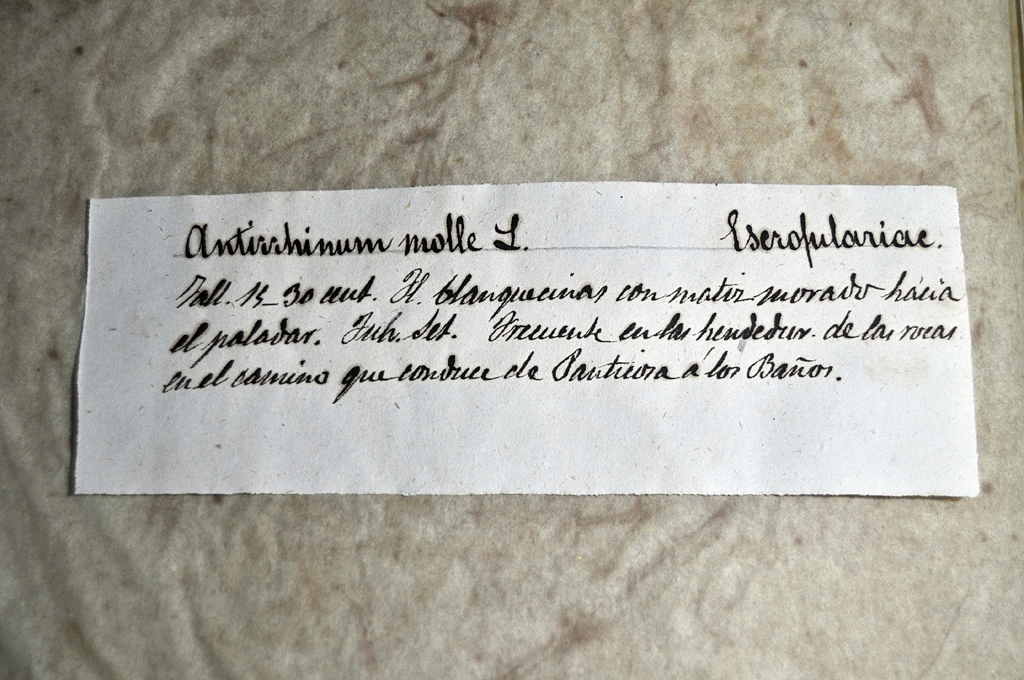 Antirrhinum molle L. Escrofulariac.
Tall. 15-30 cent. Fl. blanquecinas con matiz morado hácia
el paladar. Jul. Set. Frecuente en las hendedur. de las rocas
en el camino que conduce de Panticosa á los Baños.